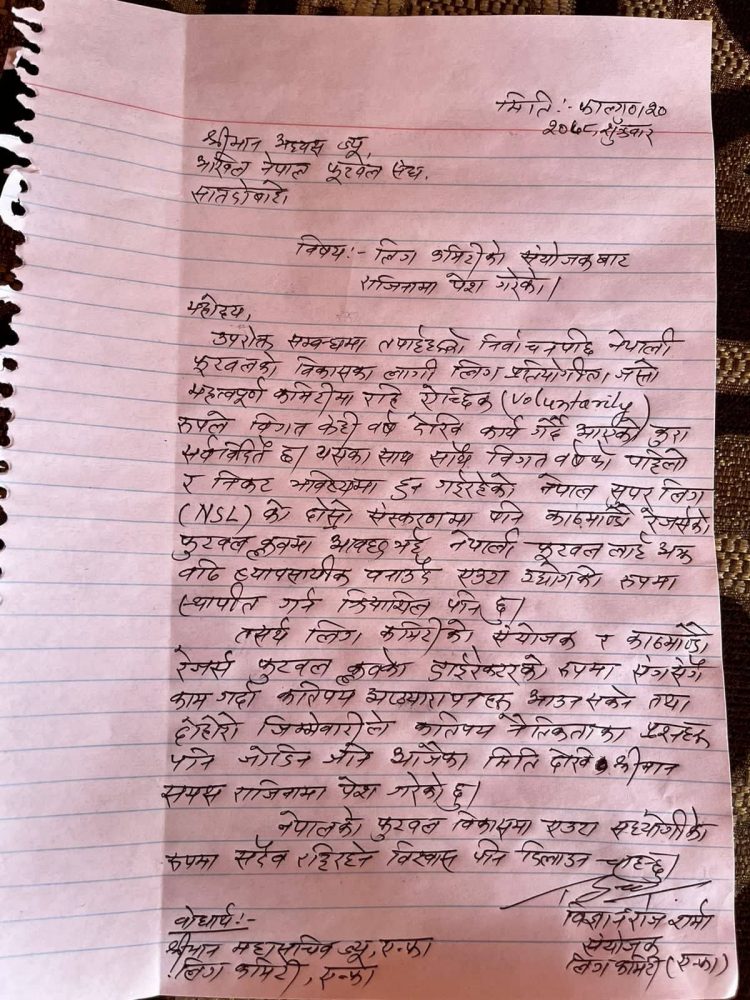 मिति:- फाल्गुण।२०
२०७८, शुक्रबार
श्रीमान अध्यक्ष ज्यू,
अखिल नेपाल फूटवल संघ,
सातदोबाटो।
विषय:- लिग कमिटीको संयोजकबाट
राजिनामा पेश गरेको।
महोदय,
उपरोक्त सम्बन्धमा तपाईहरुको निर्वाचनपछि नेपाली
फूटवलको विकासका लागी लिग प्रतियोगीता जस्तो
महत्वपूर्ण कमिटीमा राहि ऐच्छिक (Voluntarily)
रुपले विगत केही वर्ष देखि कार्य गर्दै आएको कुरा
सर्वविदितै छ। यसका साथ साथै विगत वर्षको पहिलो
र निकट भविष्यमा हुन गईरहेको नेपाल सुपर लिग
(NSL) को दोस्रो संस्करणमा पनि काठमाण्डौ रेजर्सको
फुटवल क्लवमा आवद्ध भई नेपाली फूटवल लाई अझ
वढि व्यावसायीक वनाउदै एउटा उद्योगको रुपमा
स्थापीत गर्न क्रियाशिल पनि छु।
तसर्थ लिग कमिटीको संयोजक र काठमाण्डौ
रेजर्स फुटवल क्लवको डाईरेक्टरको रुपमा संगसंगै
काम गर्दा कतिपय अप्ठ्यारापनहरु आउन सक्ने तथा
दोहोरो जिम्मेवारीले कतिपय नैतिकताका प्रश्नहरु
पनि जोडिन आजैका मिति देखि श्रीमान
समक्ष राजिनामा पेश गरेको छु।
नेपालको फुटवल विकासमा एउटा सहयोगीको
रुपमा सदैव राहिरहने विश्वास पनि दिलाउन चाहन्छु।
वोधार्थ:-
श्रीमान महासचिव ज्यू, ए.फा
लिग कमिटी, ए.फा
राज शर्मा
संयोजक
लिग कमिटी (ए.फा)